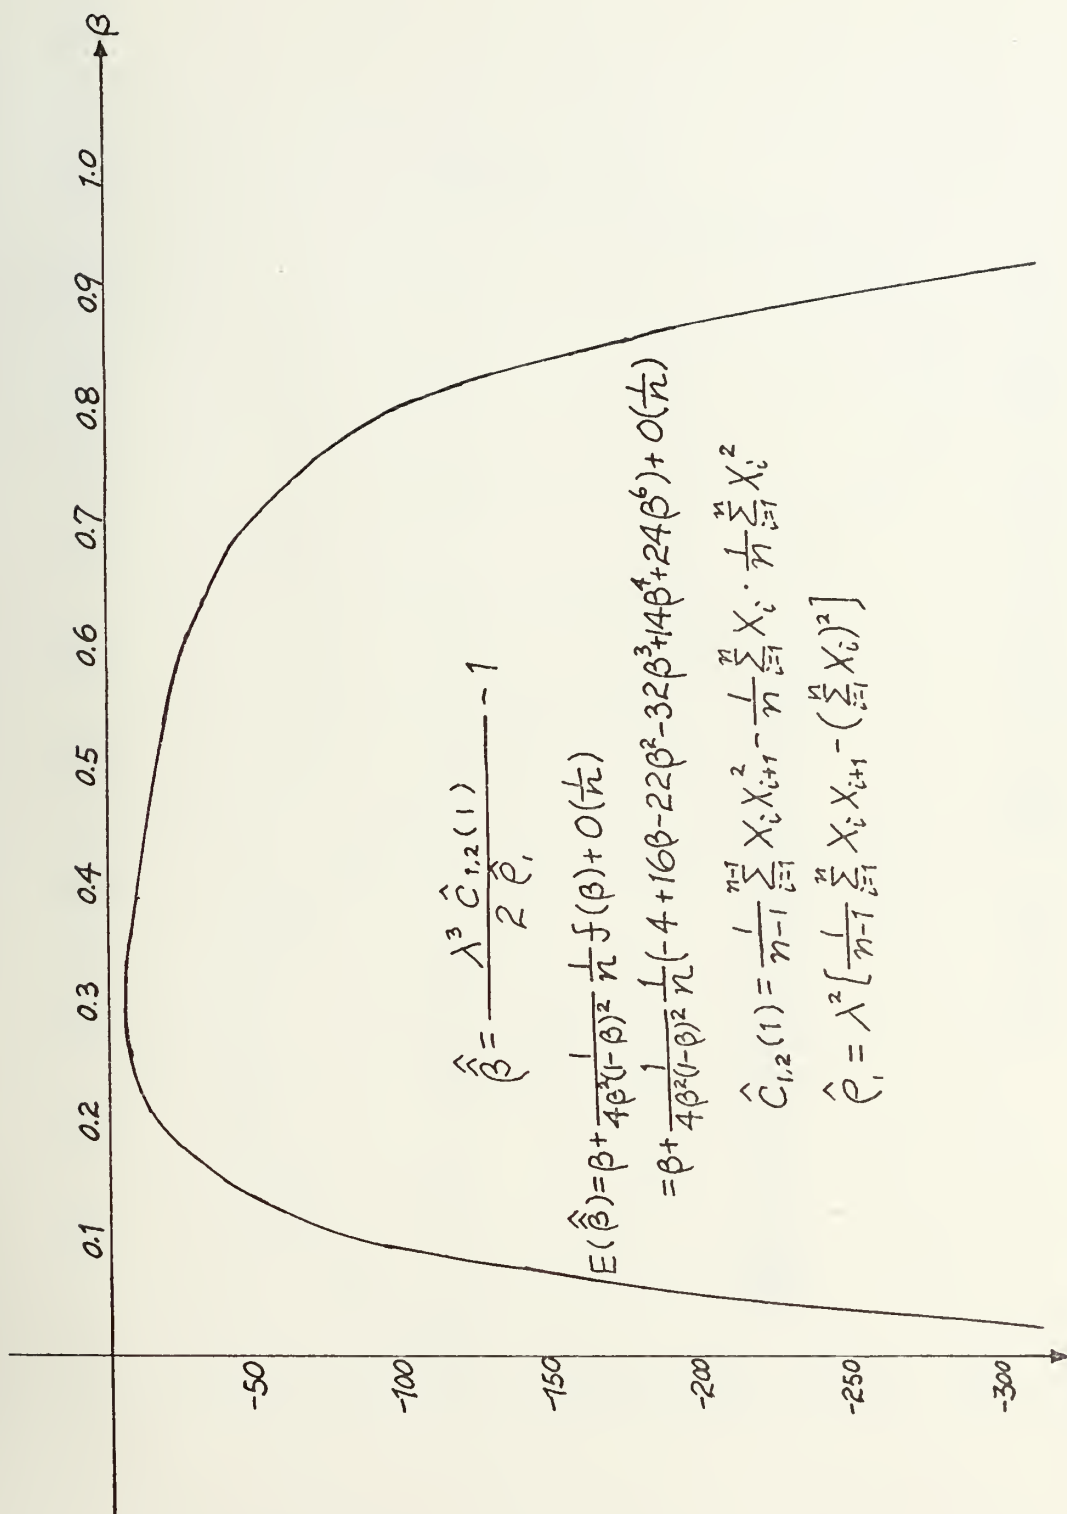 β
0.1 0.2 0.3 0.4 0.5 0.6 0.7 0.8 0.9 1.0
-50
-100
-150
-200
-250
-300
\hat{\hat{β}} = \frac{λ^3 \hat{C}_{1,2}(1)}{2 \hat{ρ}_1} - 1
E(\hat{\hat{β}}) = β + \frac{1}{4β^2(1-β)^2} \frac{1}{n} f(β) + O(\frac{1}{n})
= β + \frac{1}{4β^2(1-β)^2} \frac{1}{n} (-4 + 16β - 22β^2 - 32β^3 + 14β^4 + 24β^6) + O(\frac{1}{n})
\hat{C}_{1,2}(1) = \frac{1}{n-1} \sum_{i=1}^{n-1} X_i X_{i+1}^2 - \frac{1}{n} \sum_{i=1}^{n} X_i \cdot \frac{1}{n} \sum_{i=1}^{n} X_i^2
\hat{ρ}_1 = λ^2 [\frac{1}{n-1} \sum_{i=1}^{n} X_i X_{i+1} - (\sum_{i=1}^{n} X_i)^2]